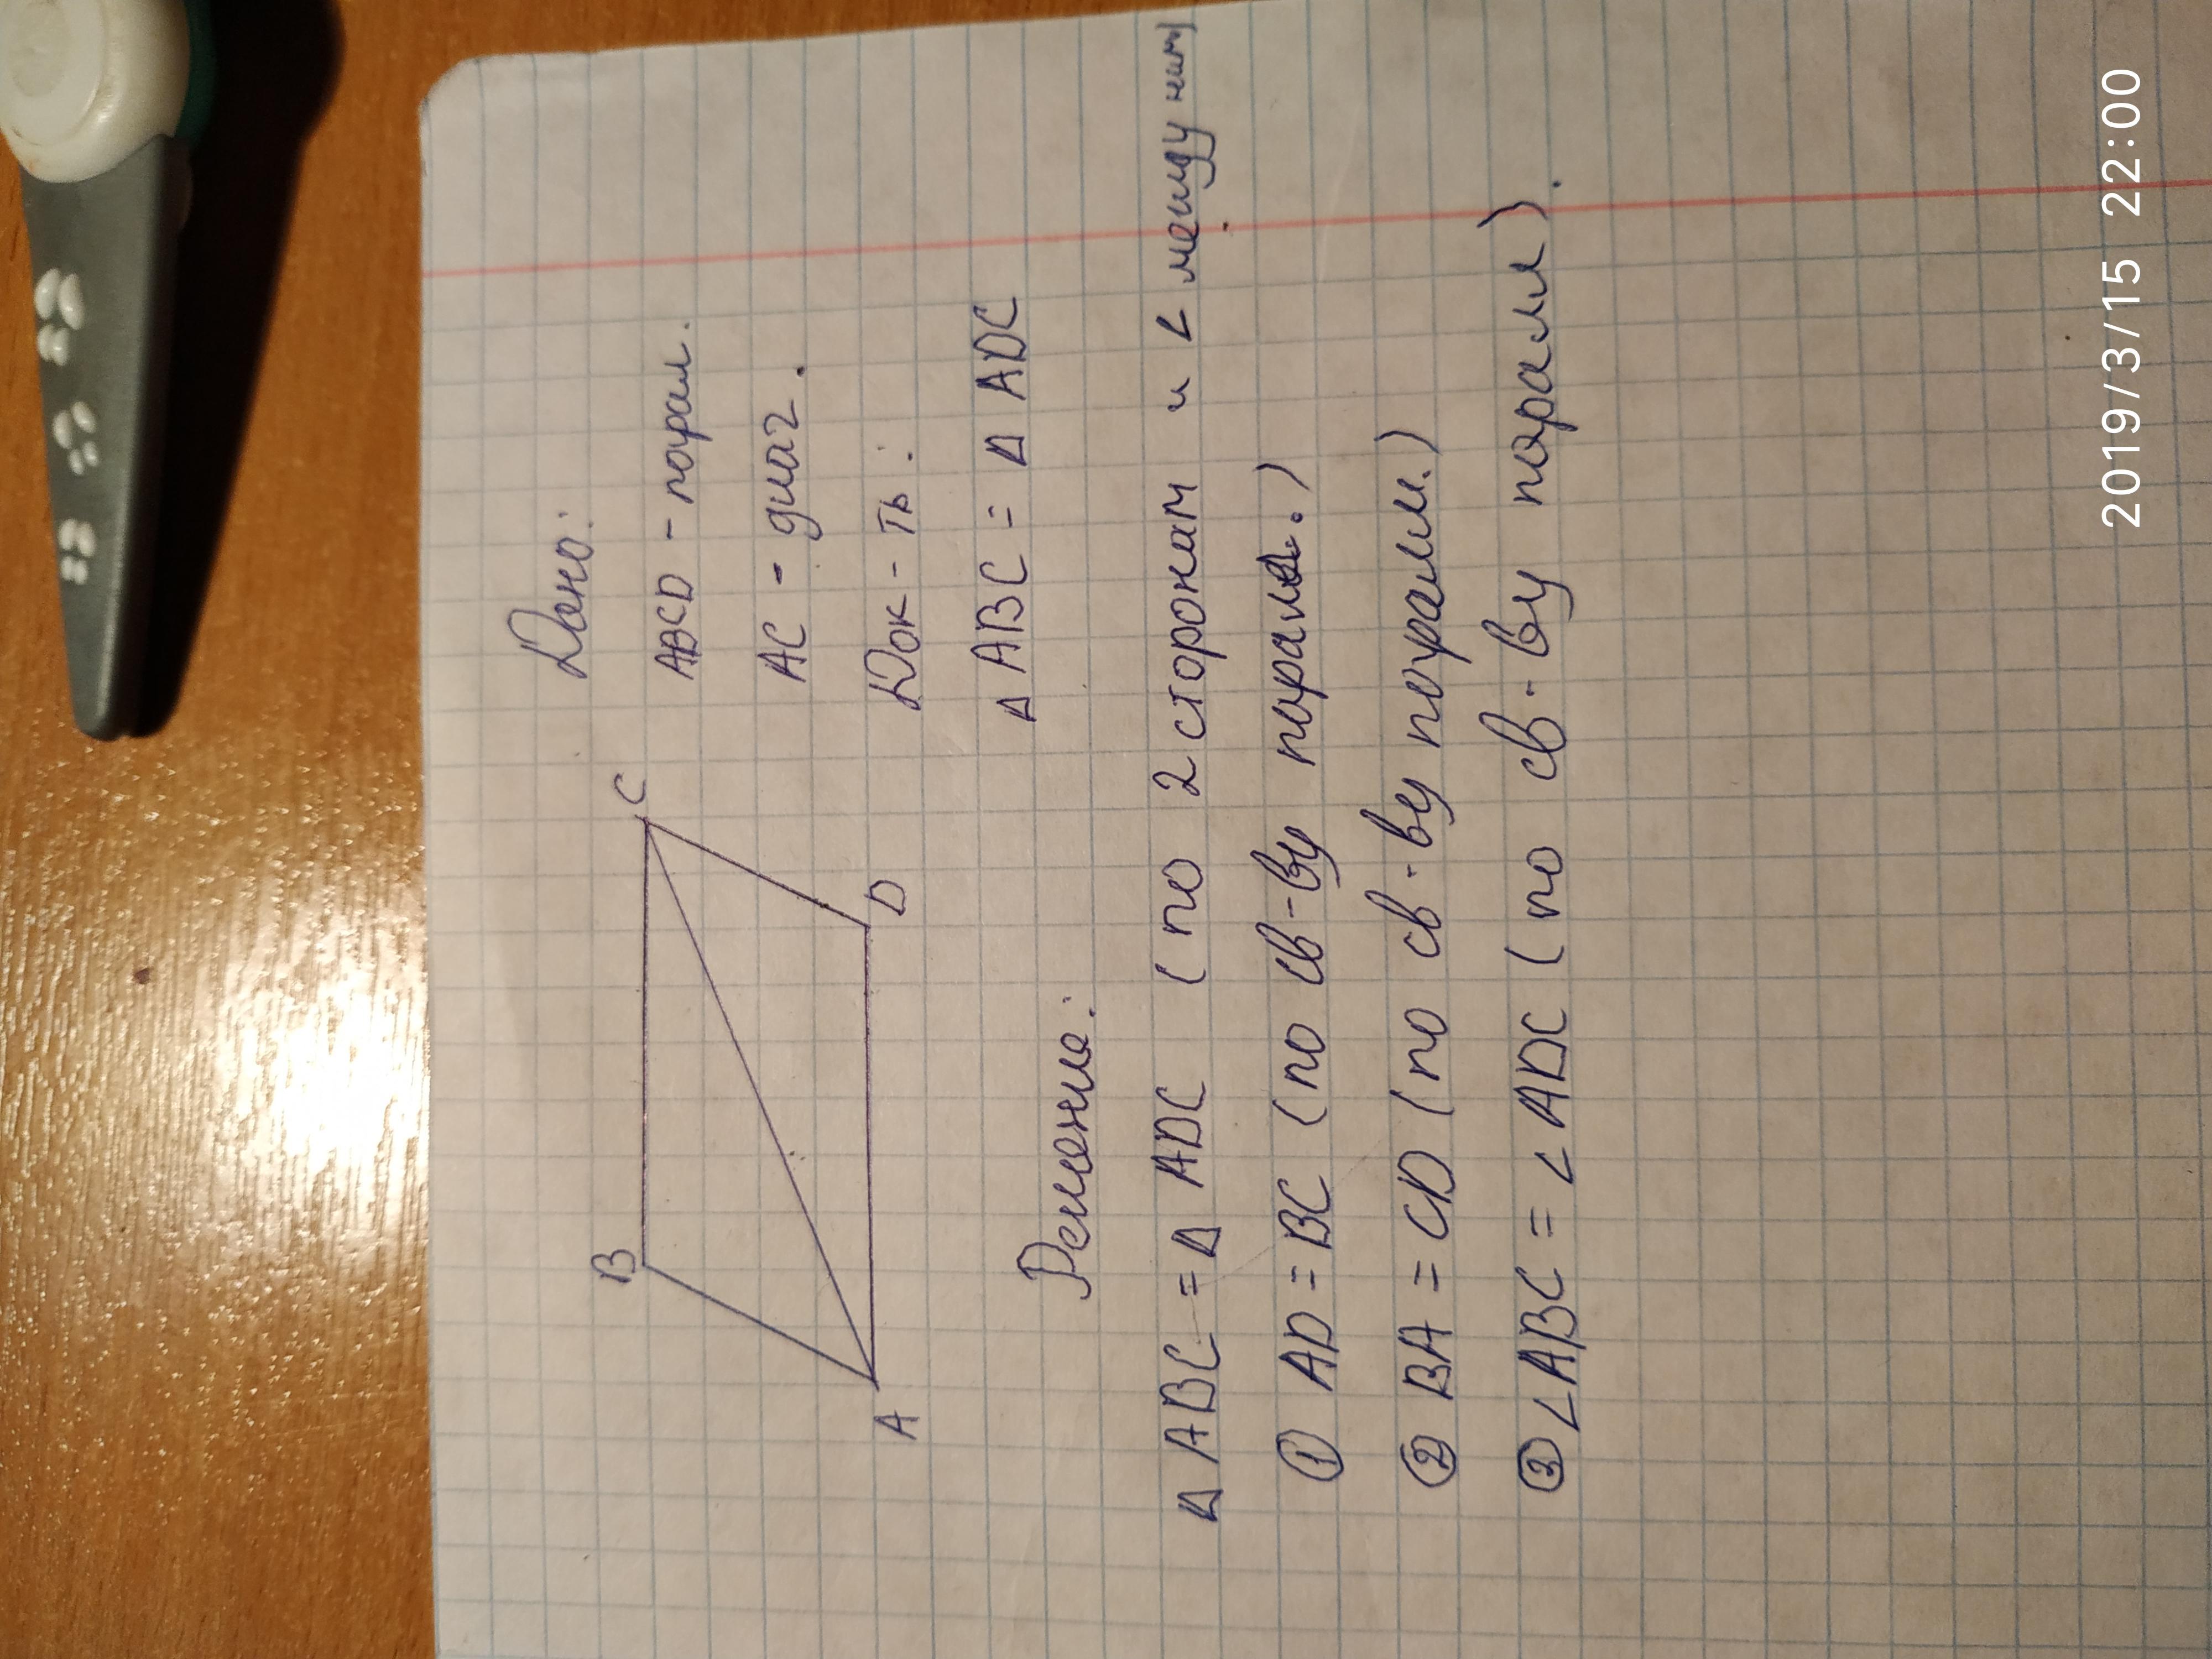 Дано:
ABCD - парал.
AC - диаг.
Док-ть:
Δ ABC = Δ ADC
B
C
A
D
Решение:
Δ ABC = Δ ADC (по 2 сторонам и ∠ между ними)
① AD = BC (по св-ву паралл.)
② BA = CD (по св-ву паралл.)
③ ∠ABC = ∠ADC (по св-ву паралл).
2019/3/15 22:00